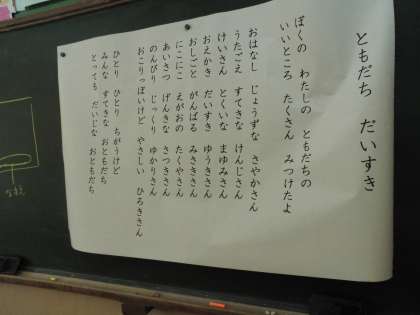 ともだち だいすき
ぼくの わたしの ともだちの
いいところ たくさん みつけたよ
おはなし じょうずな さやかさん
うたごえ すてきな けんじさん
けいさん とくいな まゆみさん
おえかき だいすき ゆうきさん
おしごと がんばる みさきさん
にこにこ えがおの たくやさん
あいさつ げんきな さつきさん
のんびり じっくり ゆかりさん
おこりっぽいけど やさしい ひろきさん
ひとり ひとり ちがうけど
みんな すてきな おともだち
とっても だいじな おともだち